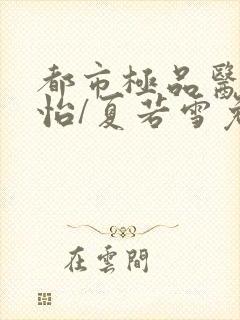 都市極品醫
怡/夏若雪
在雲間